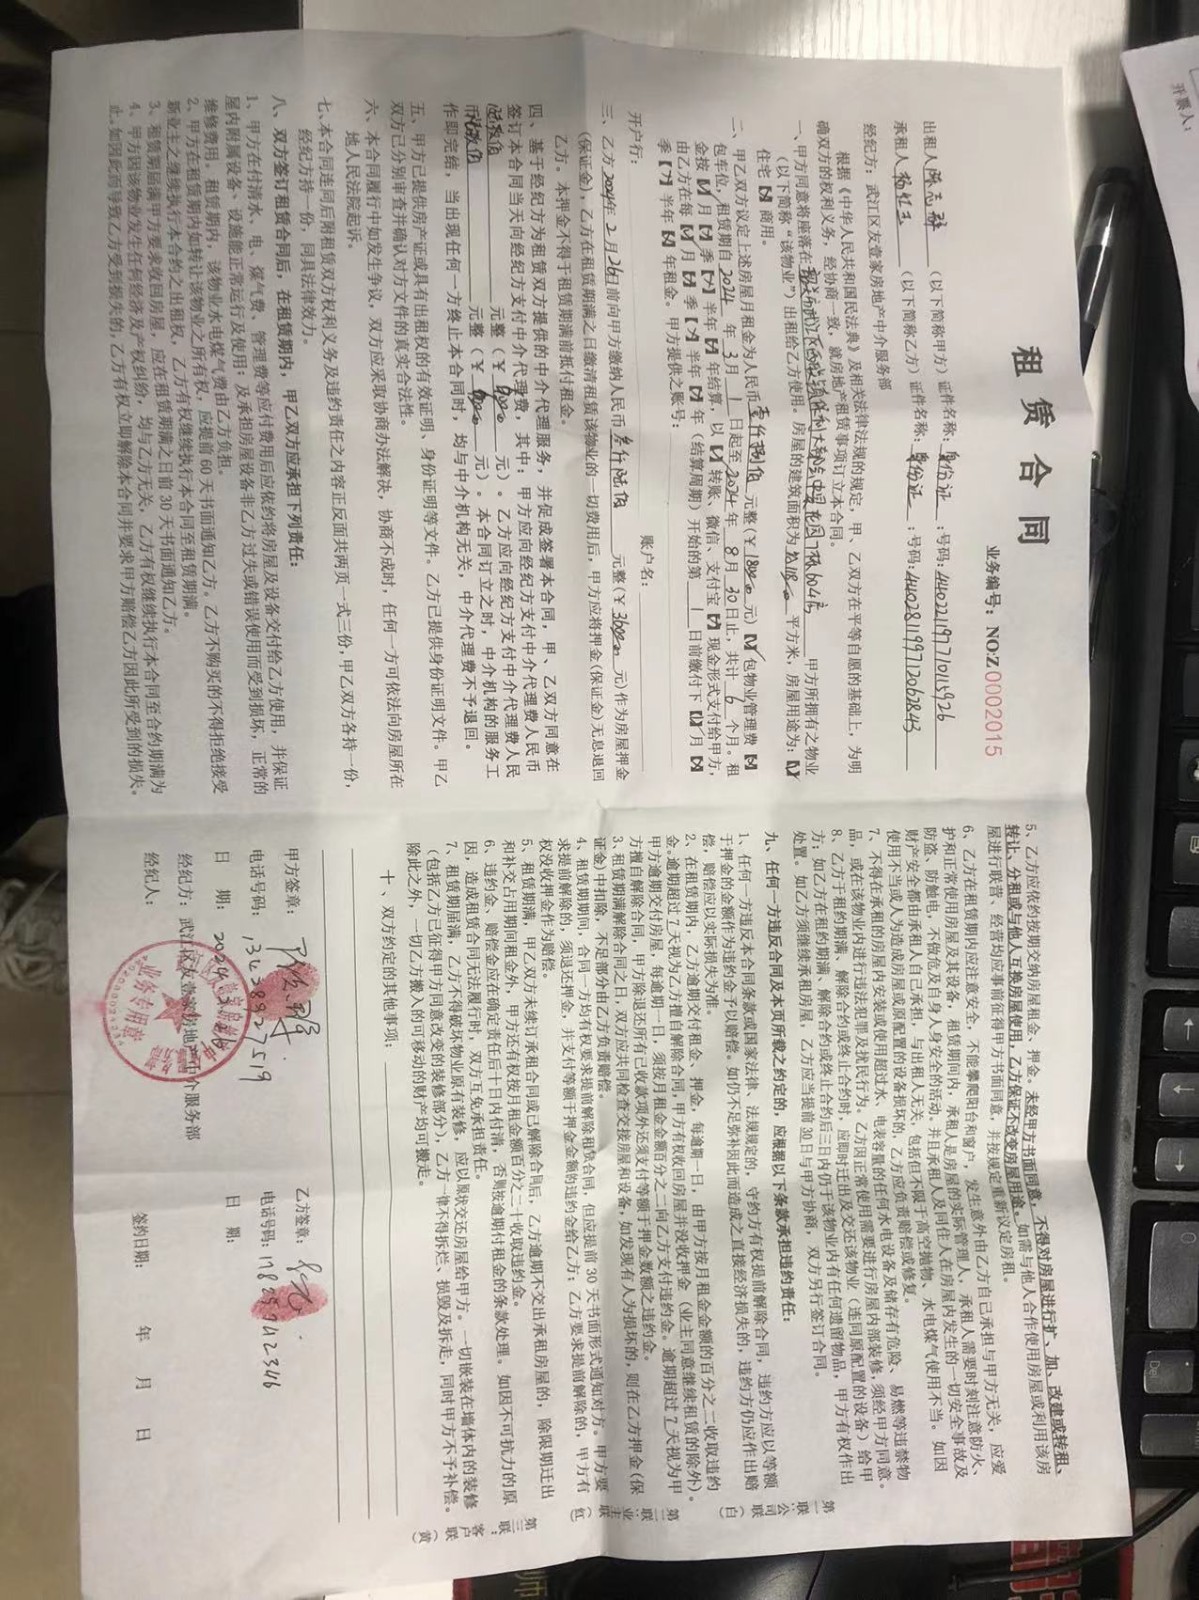 租赁合同
业务编号：NO:Z0002015
出租人（以下简称甲方）证件名称：身份证：号码：
承租人（以下简称乙方）证件名称：身份证：号码：
经纪方：武江区友壹家房地产中介服务部
根据《中华人民共和国民法典》及相关法律法规的规定，甲、乙双方在平等自愿的基础上，为明
确双方的权利义务，经协商一致，就房地产租赁事项订立本合同。
一、甲方同意将座落在 甲方所拥有之物业
（以下简称“该物业”）出租给乙方使用。房屋的建筑面积为 平方米，房屋用途为：
住宅 商用。
二、甲乙双方议定上述房屋月租金为人民币壹仟捌佰元整（¥1800 元） 包物业管理费
包车位，租赁期自2024年3月1日起至2024年8月30日止，共计6个月。租
金按 月 季 半年 年结算，以 转账、微信、支付宝 现金形式支付给甲方，
由乙方在每 月 季 半年 年（结算周期）开始的第1日前缴付下 月
季 半年 年租金。甲方提供之账号：
开户行： 账户名：
三、乙方2024年2月26日前向甲方缴纳人民币叁仟陆佰元整（¥3600 元）作为房屋押金
（保证金），乙方在租赁期满之日缴清租赁该物业的一切费用后，甲方应将押金（保证金）无息退回
乙方。本押金不得于租赁期满前抵付租金。
四、基于经纪方为租赁双方提供的中介代理服务，并促成签署本合同，甲、乙双方同意在
签订本合同当天向经纪方支付中介代理费，其中：甲方应向经纪方支付中介代理费人民币
元整（¥ 元）。乙方应向经纪方支付中介代理费人民
币 元整（¥ 元）。本合同订立之时，中介机构的服务工
作即完结，当出现任何一方终止本合同时，均与中介机构无关，中介代理费不予退回。
五、甲方已提供房产证或具有出租权的有效证明、身份证明等文件。乙方已提供身份证明文件。甲乙
双方已分别审查并确认对方文件的真实合法性。
六、本合同履行中如发生争议，双方应采取协商办法解决，协商不成时，任何一方可依法向房屋所在
地人民法院起诉。
七、本合同连同后附租赁双方权利义务及违约责任之内容正反面共两页一式三份，甲乙双方各持一份，
经纪方持一份，同具法律效力。
八、双方签订租赁合同后，在租赁期内，甲乙双方应承担下列责任：
1、甲方在付清水、电、煤气费、管理费等应付费用后应依约将房屋及设备交付给乙方使用，并保证
屋内附属设备、设施能正常运行及使用；及承担房屋设备非乙方过失或错误使用而受到损坏，正常的
维修费用，租赁期内，该物业水电煤气费由乙方负担。
2、甲方在租赁期内如转让该物业之所有权，应提前60天书面通知乙方。乙方不购买的不得拒绝接受
新业主之继续执行本合约之出租权，乙方有权继续执行本合同至租赁期满。
3、租赁期届满甲方要求收回房屋，应在租赁期满之日前30天书面通知乙方。
4、甲方因该物业发生任何经济及产权纠纷，均与乙方无关，乙方有权继续执行本合同至合约期满为
止。如因此而导致乙方受到损失的，乙方有权立即解除本合同并要求甲方赔偿乙方因此所受到的损失。
5、乙方应依约按期交纳房屋租金、押金。未经甲方书面同意，不得对房屋进行扩、加、改建或转租、
转让、分租或与他人互换房屋使用，乙方保证不改变房屋用途。如需与他人合作使用房屋或利用该房
屋进行联营、经营均应事前征得甲方书面同意，并按规定重新议定房租。
6、乙方在租赁期内应注意安全，不能攀爬阳台和窗户，发生意外由乙方自己承担与甲方无关，应爱
护和正常使用房屋及其设备，租赁期间内，承租人是房屋的实际管理人，承租人需要时刻注意防火、
防盗、防触电，不做危及自身人身安全的活动。并且承租人及同住人在房屋内发生的一切安全事故及
财产安全都由承租人自己承担，与出租人无关，包括但不限于高空抛物、水电煤气使用不当。如因
使用不当或人为造成房屋或原配置的设备损坏的，乙方应负责赔偿或修复。
7、不得在承租的房屋内安装或使用超过水、电表容量的任何水电设备及储存有危险、易燃等违禁物
品，或在该物业内进行违法犯罪及扰民行为。乙方因正常使用需要进行房屋内部装修，须经甲方同意。
8、乙方于租约期满、解除合约或终止合约时，应即时迁出及交还该物业（连同原配置的设备）给甲
方；如乙方在租约期满、解除合约或终止合约后三日内仍于该物业内有任何遗留物品，甲方有权作出
处置，如乙方须继续承租房屋，乙方应当提前30日与甲方协商，双方另行签订合同。
九、任何一方违反合同及本页所载之约定的，应根据以下条款承担违约责任：
1、任何一方违反本合同条款或国家法律、法规规定的，守约方有权提前解除合同，违约方应以等额
于押金的金额作为违约金予以赔偿。如仍不足弥补因此而造成之直接经济损失的，违约方仍应作出赔
偿，赔偿应以实际损失为准。
2、在租赁期内，乙方逾期交付租金、押金，每逾期一日，由甲方按月租金金额的百分之二收取违约
金。逾期超过7天视为乙方擅自解除合同，甲方有权收回房屋并没收押金（业主同意继续租赁的除外）。
甲方逾期交付房屋，每逾期一日，须按月租金金额百分之二向乙方支付违约金。逾期超过7天视为甲
方擅自解除合同，甲方除退还所有已收款项外还须支付等额于押金数额之违约金。
3、租赁期满解除合同之日，双方应共同检查交接房屋和设备，如发现有人为损坏的，则在乙方押金（保
证金）中扣除，不足部分由乙方负责赔偿。
4、租赁期期间，合同一方均有权要求提前解除租赁合同，但应提前30天书面形式通知对方。甲方要
求提前解除的，须退还押金，并支付等额于押金金额的违约金给乙方；乙方要求提前解除的，甲方有
权没收押金作为赔偿。
5、租赁期满，甲乙双方未续订承租合同或已解除合同后，乙方逾期不交出承租房屋的，除限期迁出
和补交占用期间租金外，甲方还有权按月租金额百分之二十收取违约金。
6、违约金、赔偿金应在确定责任后十日内付清，否则按逾期付租金的条款处理。如因不可抗力的原
因，造成租赁合同无法履行时，双方互免承担责任。
7、租赁期届满，乙方不得破坏物业原有装修，应以原状交还房屋给甲方。一切嵌装在墙体内的装修
（包括乙方已征得甲方同意改变的装修部分），乙方一律不得拆烂、损毁及拆走，同时甲方不予补偿。
除此之外，一切乙方搬入的可移动的财产均可搬走。
十、双方约定的其他事项：
甲方签章： 乙方签章：
电话号码： 电话号码：
日 期： 日 期：
经纪方：武江区友壹家房地产中介服务部
经纪人： 签约日期： 年 月 日
业务专用章
第一联：公司联（白）
第二联：业主联（红）
第三联：客户联（黄）
开票人：
Del